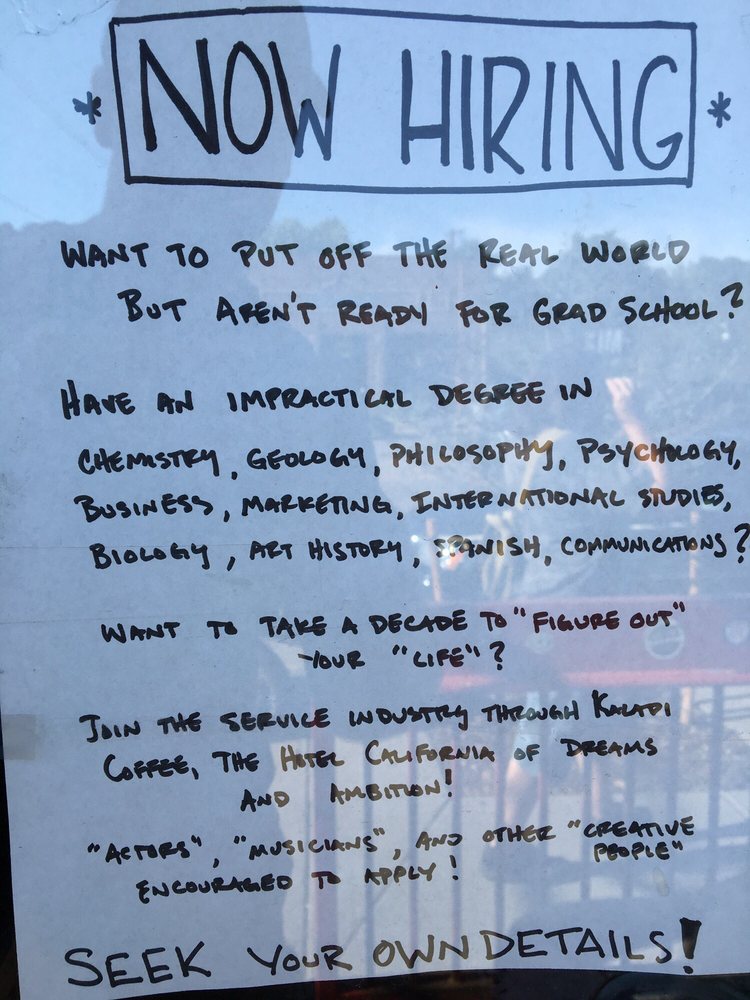 * NOW HIRING *
WANT TO PUT OFF THE REAL WORLD
BUT AREN'T READY FOR GRAD SCHOOL?
HAVE AN IMPRACTICAL DEGREE IN
CHEMISTRY, GEOLOGY, PHILOSOPHY, PSYCHOLOGY,
BUSINESS, MARKETING, INTERNATIONAL STUDIES,
BIOLOGY, ART HISTORY, SPANISH, COMMUNICATIONS?
WANT TO TAKE A DECADE TO "FIGURE OUT"
YOUR "LIFE"?
JOIN THE SERVICE INDUSTRY THROUGH KALADI
COFFEE, THE HOTEL CALIFORNIA OF DREAMS
AND AMBITION!
"ACTORS", "MUSICIANS", AND OTHER "CREATIVE
PEOPLE"
ENCOURAGED TO APPLY!
SEEK YOUR OWN DETAILS!